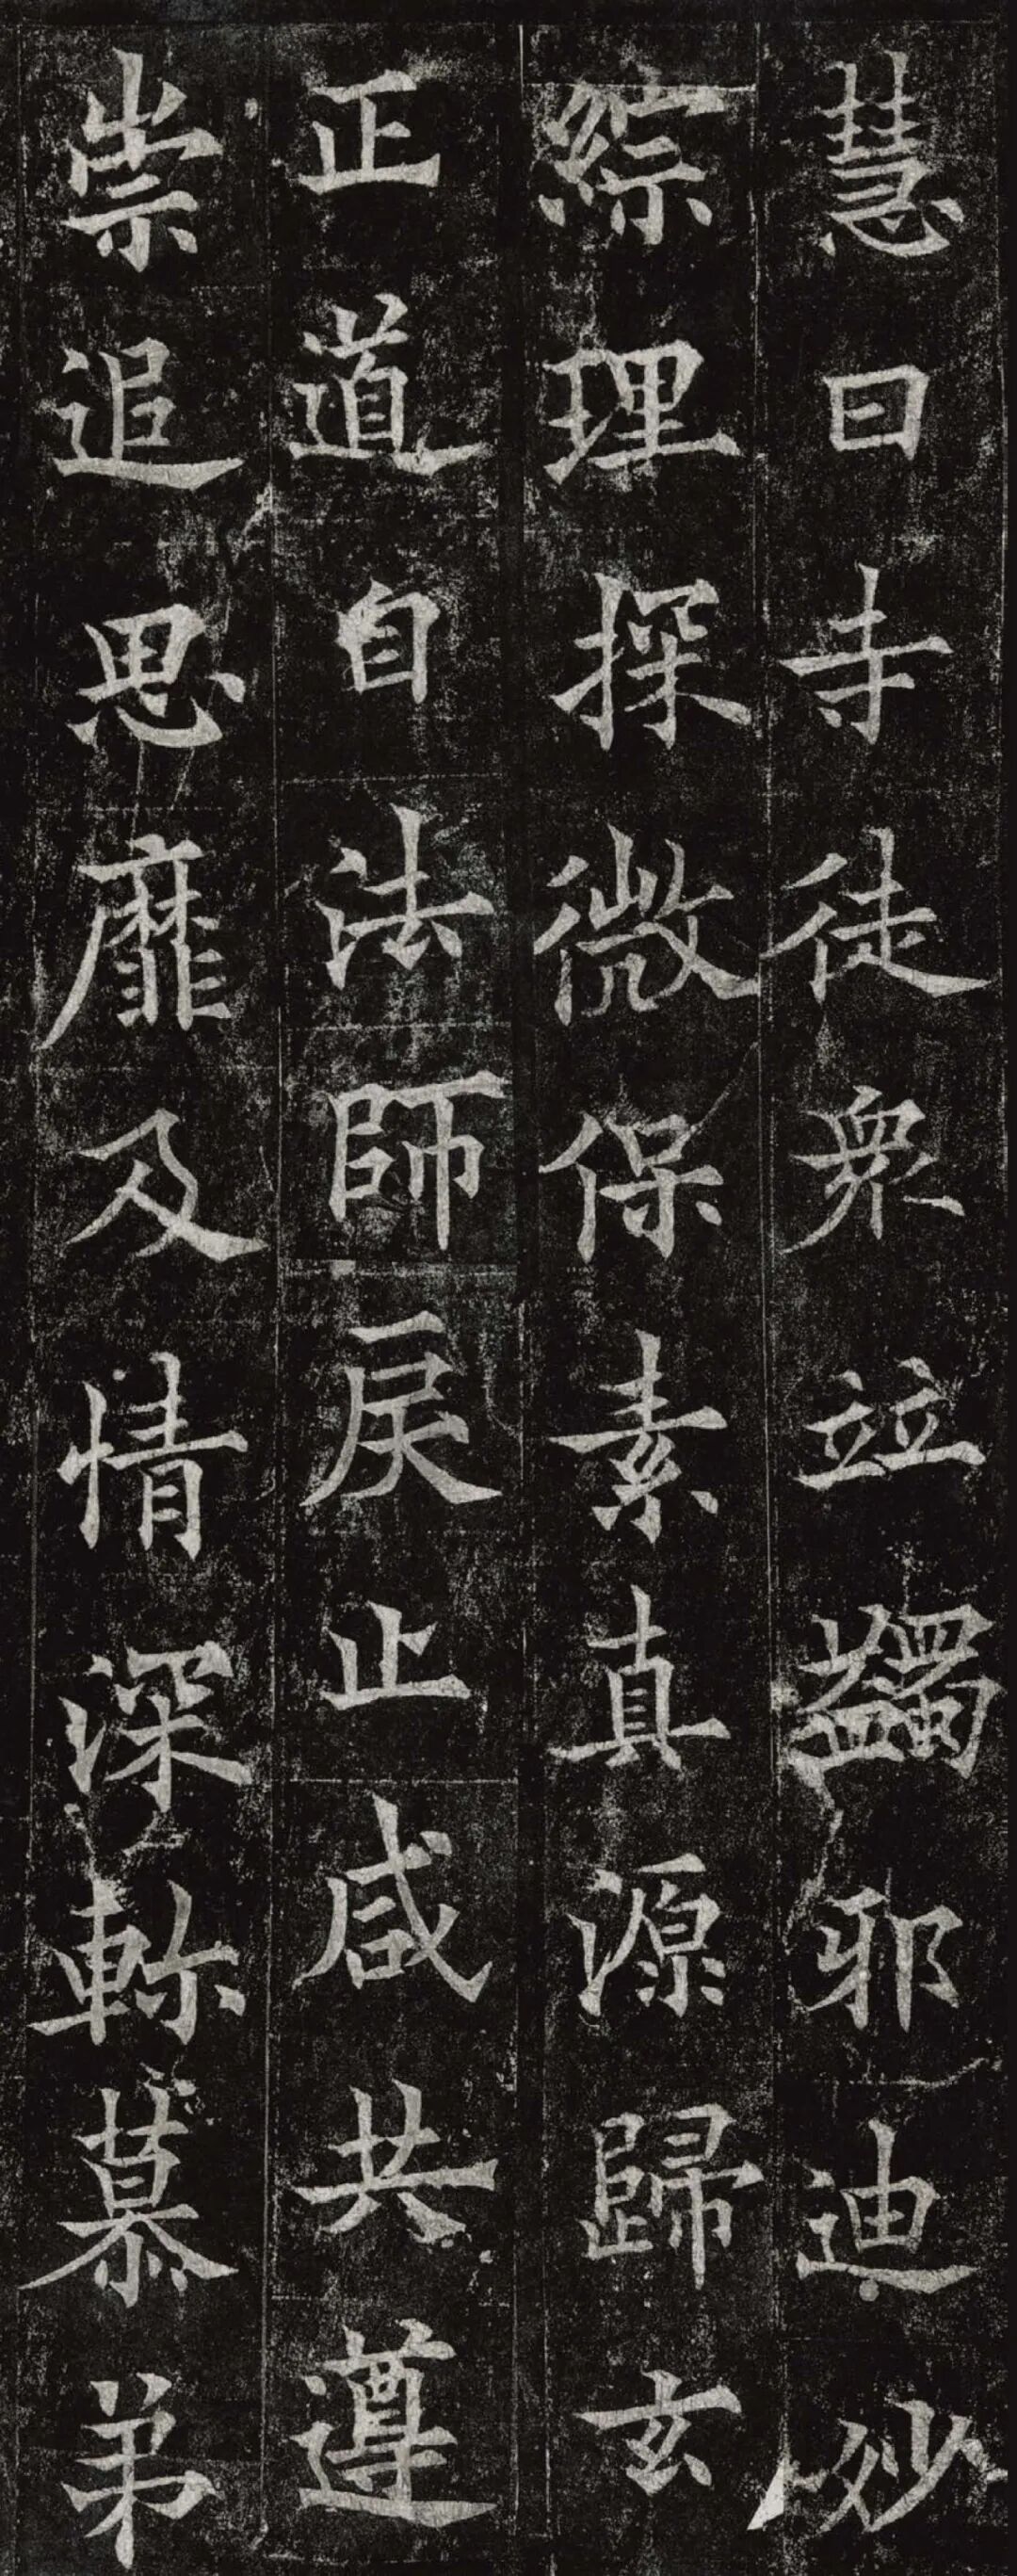 慧曰寺徒衆竝蠲邪迪妙
綜理探微保素真源歸玄
正道自法師戾止咸共遵
崇追思靡及情深軫慕弟